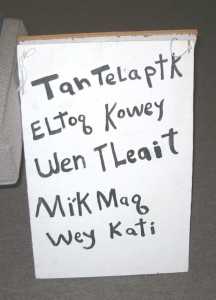 TanTeLaptK
ELToq Kowey
Wen TLeait
MiKMaq
Wey Kati